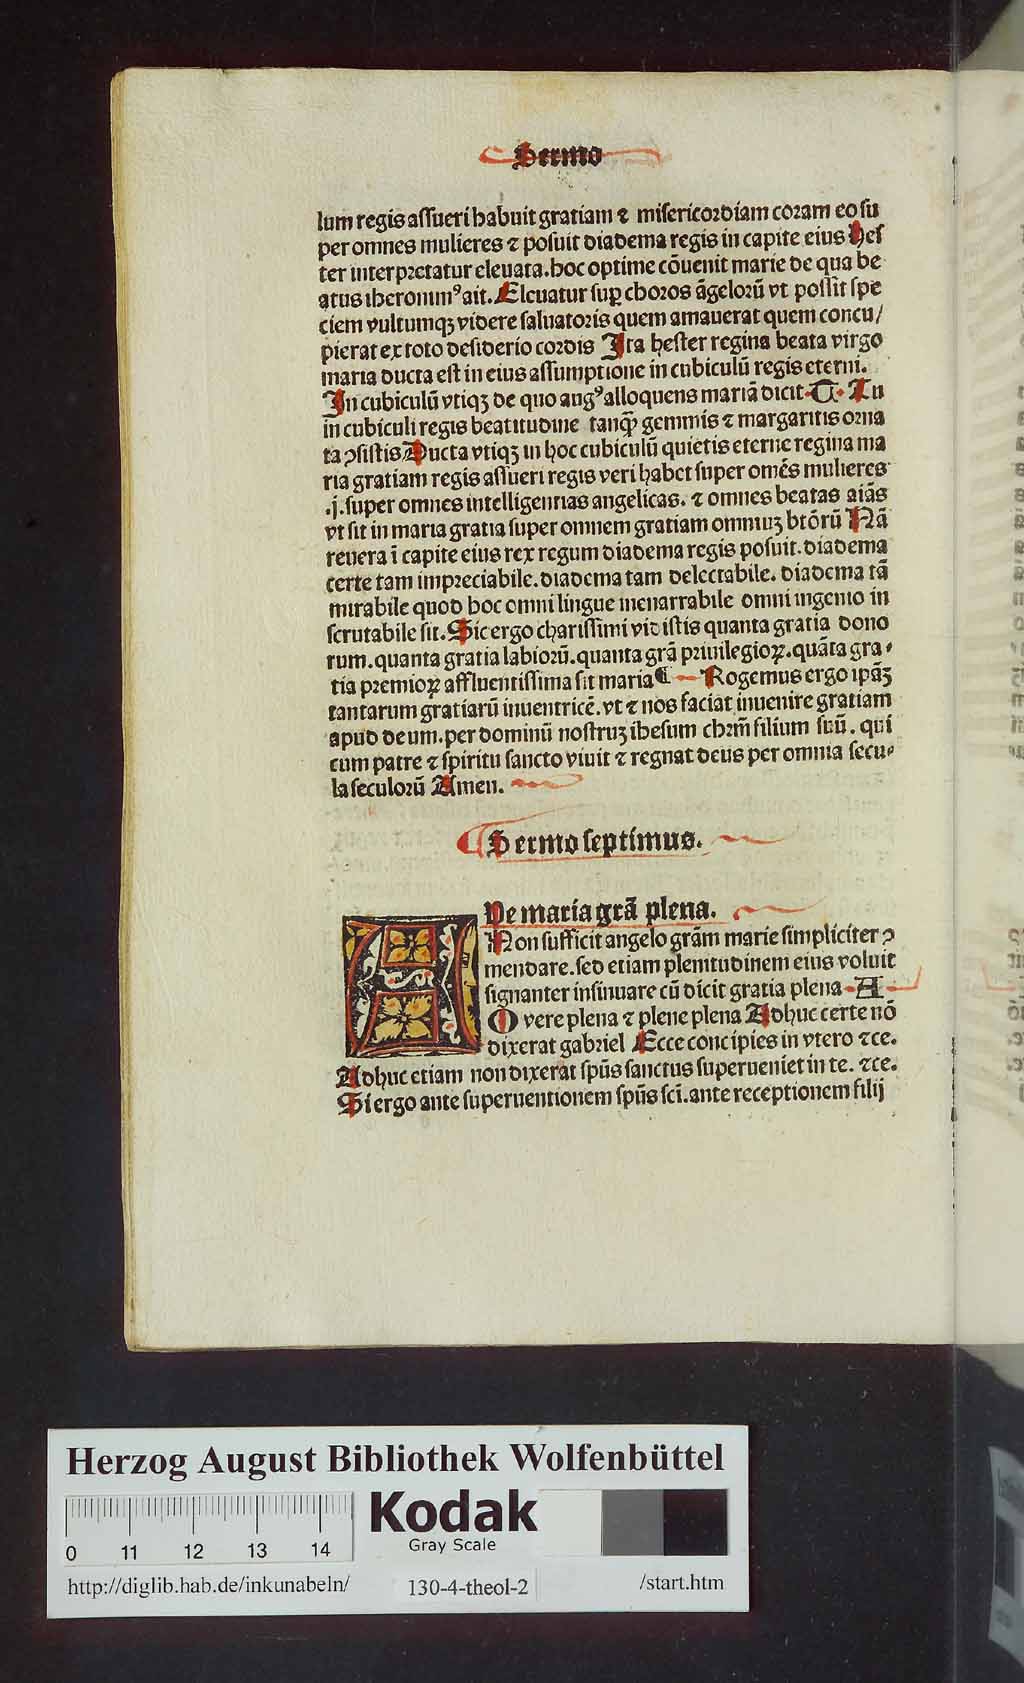 Sermo
lum regis assueri habuit gratiam ⁊ misericordiam coram eo su
per omnes mulieres ⁊ posuit diadema regis in capite eius Hes
ter interpretatur eleuata. hoc optime cōuenit marie de qua be
atus iheronimꝰ ait. Eleuatur suꝑ choros āgelorū vt possit spe
ciem vultumqꝫ videre saluatoris quem amauerat quem concu/
pierat ex toto desiderio cordis Ita hester regina beata virgo
maria ducta est in eius assumptione in cubiculū regis eterni.
In cubiculū vtiqꝫ de quo augꝰ alloquens mariā dicit. T. Tu
in cubiculi regis beatitudine tanqꝫ gemmis ⁊ margaritis orna
ta ꝯsistis Ducta vtiqꝫ in hoc cubiculū quietis eterne regina ma
ria gratiam regis assueri regis veri habet super omēs mulieres
.i. super omnes intelligentias angelicas. ⁊ omnes beatas aiās
vt sit in maria gratia super omnem gratiam omniuꝫ btōrū Nā
reuera ī capite eius rex regum diadema regis posuit. diadema
certe tam impreciabile. diadema tam delectabile. diadema tā
mirabile quod hoc omni lingue inenarrabile omni ingenio in
scrutabile sit. Sic ergo charissimi vidistis quanta gratia dono
rum. quanta gratia labiorū. quanta grā priuilegioꝝ. quāta gra
tia premioꝝ affluentissima sit maria ¶ Rogemus ergo ipāꝫ
tantarum gratiarū inuentricē. vt ⁊ nos faciat inuenire gratiam
apud deum. per dominū nostruꝫ ihesum chrm̄ filium suū. qui
cum patre ⁊ spiritu sancto viuit ⁊ regnat deus per omnia secu
la seculorū Amen.
Sermo septimus.
AUe maria grā plena.
Non sufficit angelo grām marie simpliciter ꝯ
mendare. sed etiam plenitudinem eius voluit
signanter insinuare cū dicit gratia plena A
O vere plena ⁊ plene plena Adhuc certe nō
dixerat gabriel Ecce concipies in vtero ⁊ce.
Adhuc etiam non dixerat spūs sanctus superueniet in te. ⁊ce.
Si ergo ante superuentionem spūs scī. ante receptionem filij
Herzog August Bibliothek Wolfenbüttel
Kodak
Gray Scale
0 11 12 13 14
http://diglib.hab.de/inkunabeln/ 130-4-theol-2 /start.htm